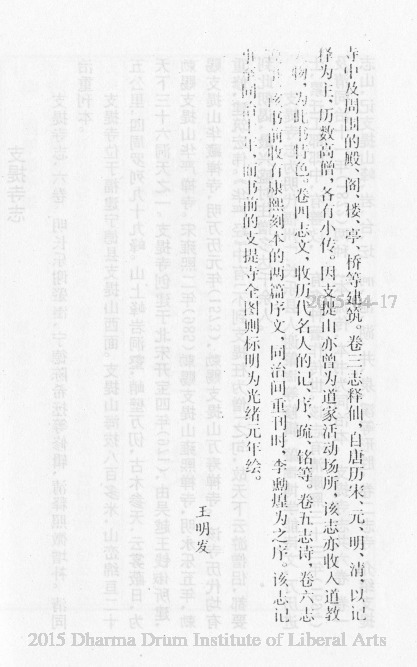 寺中及周围的殿、阁、楼、亭、桥等建筑。卷三志释仙，自唐历宋、元、明、清，以记
择为主，历数高僧，各有小传。因支提山亦曾为道家活动场所，该志亦收入道教
人物，为此书特色。卷四志文，收历代名人的记、序、疏、铭等。卷五志诗，卷六志
该书前收有康熙刻本的两篇序文，同治间重刊时，李勳煌为之序。该志记
事至同治十年，而书前的支提寺全图则标明为光绪元年绘。
王明发
2015-04-17
2015 Dharma Drum Institute of Liberal Arts